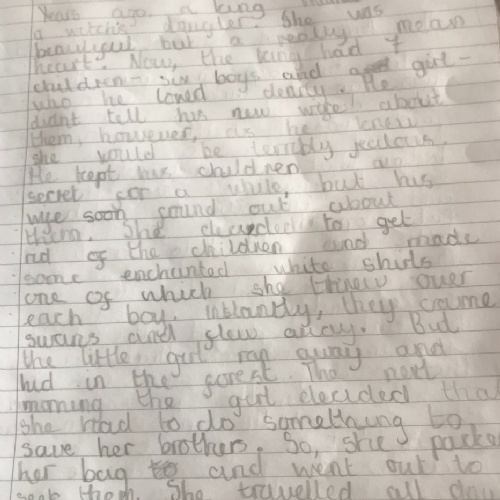 Years ago, a king
a witch's daugter. She was
beautiful but a really mean
heart. Now, the king had 7
children - six boys and a girl -
who he loved dearly. He
didnt tell his new wife about
them, however, as he knew
she would be terribly jealous.
He kept his children a
secret for a while, but his
wife soon found out about
them. She decided to get
rid of the children and made
some enchanted white shirts
one of which she threw over
each boy. Instantly, they became
swans and flew away. But
the little girl ran away and
hid in the forest. The next
morning the girl decided that
she had to do something to
save her brothers. So, she packed
her bag and went out to
seek them. She travelled all day